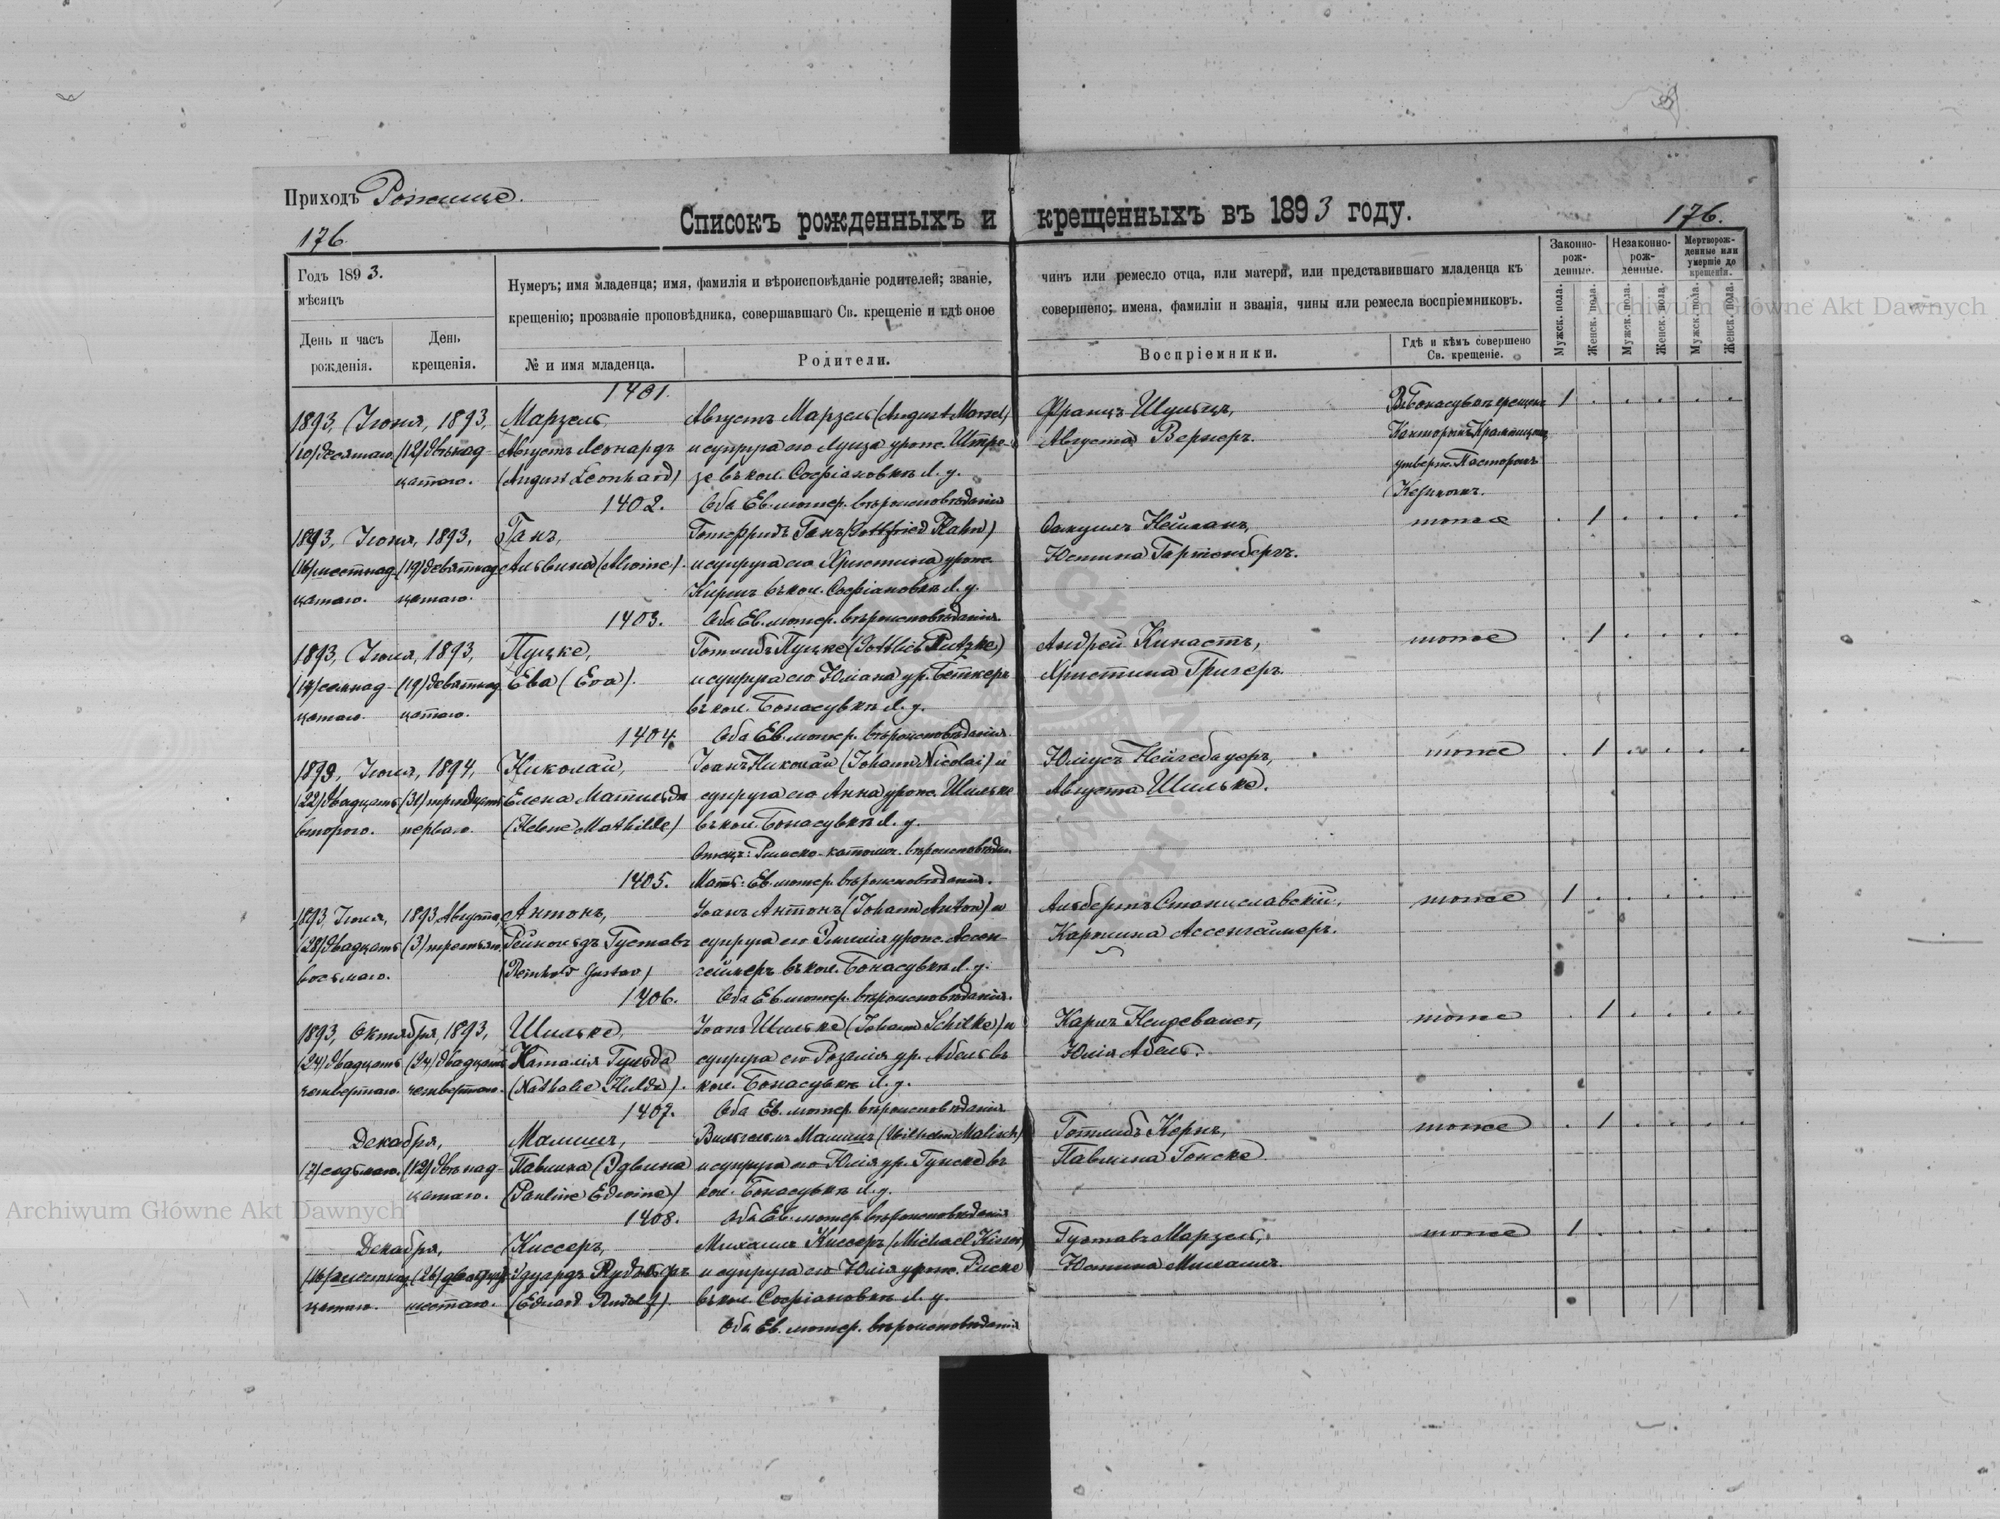 Приходъ Рожище.
Списокъ рожденныхъ и крещенныхъ въ 1893 году.
176.
176.
Годъ 1893.
мѣсяцъ
День и часъ рожденія.
День крещенія.
Нумеръ; имя младенца; имя, фамилія и вѣроисповѣданіе родителей; званіе, чинъ или ремесло отца, или матери, или представившаго младенца къ
крещенію; прозваніе проповѣдника, совершавшаго Св. крещеніе и гдѣ оное совершено; имена, фамиліи и званія, чины или ремесла воспріемниковъ.
№ и имя младенца.
Родители.
Воспріемники.
Гдѣ и кѣмъ совершено Св. крещеніе.
Законно-рож-денные.
Незаконно-рож-денные.
Мертворож-денные или умершіе до крещенія.
Мужск. пола.
Женск. пола.
Мужск. пола.
Женск. пола.
Мужск. пола.
Женск. пола.
1401.
1893, Іюня, 1893, Марзель, Августъ Марзель (August Marsel) Францъ Шульцъ, 1
(10) десятаго (12) двѣнад- Августъ Леонардъ и супруга его Луиза урож. Августа Вернеръ.
цатаго. (August Leonhard) въ кол. Софіановкѣ Л. у.
1402. Оба Ев. лютер. вѣроисповѣданія
1893, Іюня, 1893, Ганъ, Готфридъ Ганъ (Gottfried Hahn) Нейманъ, тоже 1
(16) шестнад- (19) девятнад- Альвина (Alwine). и супруга его Христина урож. Юстина Гартенбергъ.
цатаго. цатаго. въ кол. Софіановкѣ Л. у.
1403. Оба Ев. лютер. вѣроисповѣданія
1893, 1893, Пуцке, Готлибъ Пуцке (Gottlieb Putzke) Андрей Кинастъ, тоже 1
семнад- (19) девятнад- Ева (Eva). и супруга его Юліана ур. Беткеръ Христина Григеръ.
цатаго. цатаго. въ кол. Бонасувкѣ Л. у.
1404. Оба Ев. лютер. вѣроисповѣданія
1893, 1894, Николай, Іоанъ Николай (Johann Nicolai) и Юліусъ Нейгебауеръ, тоже 1
(22) двадцать (31) тридцать Елена Матильда супруга его Анна урож. Шильке Августа Шильке.
второго. перваго. (Helene Mathilde) въ кол. Бонасувкѣ Л. у.
Отецъ: Римско-католич. вѣроисповѣдан.
1405. Мать: Ев. лютер. вѣроисповѣданія.
1893 1893 Августа, Антонъ, Іоанъ Антонъ (Johann Anton) и Альбертъ Станиславскій, тоже 1
(28) двадцать (3) третьяго Рейнольдъ Густавъ супруга его Эмилія урож. Ассен- Каролина Ассенгеймеръ.
восьмаго. (Reinhold Gustav) геймеръ въ кол. Бонасувкѣ Л. у.
1406. Оба Ев. лютер. вѣроисповѣданія.
1893, Октября, 1893, Шильке, Іоанъ Шильке (Johann Schilke) и Карлъ тоже 1
(24) двадцать (24) двадцать Наталія Гульда супруга его Розалія ур. Абель въ Юлія Абель.
четвертаго. четвертаго. (Nathalie Hulda). кол. Бонасувкѣ Л. у.
1407. Оба Ев. лютер. вѣроисповѣданія
Декабря, Малишъ, Вильгельмъ Малишъ (Wilhelm Malisch) Готлибъ Кернъ, тоже 1
(7) седьмаго. (12) двѣнад- Павлина Эдвина и супруга его Юлія ур. въ Павлина Гонске.
цатаго. (Pauline Edwine) кол. Бонасувкѣ Л. у.
1408. Оба Ев. лютер. вѣроисповѣданія
Декабря, Киссеръ, Михаилъ Киссеръ (Michael Kisser) Густавъ Марзель, тоже 1
(16) шестнад- (26) двадцать Эдуардъ Рудольфъ и супруга его Юлія урож. Риске Юстина Михаилъ.
цатаго. шестаго. (Eduard Rudolf). въ кол. Софіановкѣ Л. у.
Оба Ев. лютер. вѣроисповѣданія
Archiwum Główne Akt Dawnych
Archiwum Główne Akt Dawnych